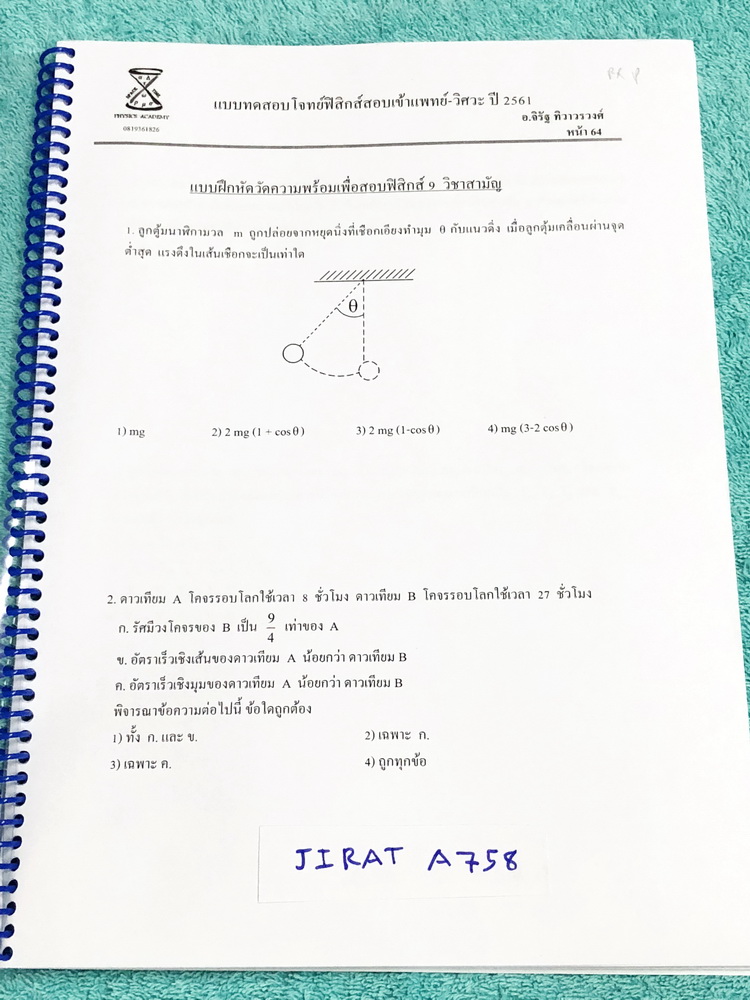 แบบทดสอบโจทย์ฟิสิกส์สอบเข้าแพทย์-วิศวะ ปี 2561
อ.จิรัฐ ทิวาวรวงศ์
หน้า 64
PHYSICS ACADEMY
0819361826
แบบฝึกหัดวัดความพร้อมเพื่อสอบฟิสิกส์ 9 วิชาสามัญ
1. ลูกตุ้มนาฬิกามวล m ถูกปล่อยจากหยุดนิ่งที่เชือกเอียงทำมุม θ กับแนวดิ่ง เมื่อลูกตุ้มเคลื่อนผ่านจุด
ต่ำสุด แรงดึงในเส้นเชือกจะเป็นเท่าใด
θ
1) mg 2) 2 mg (1 + cosθ) 3) 2 mg (1-cosθ) 4) mg (3-2 cosθ)
2. ดาวเทียม A โคจรรอบโลกใช้เวลา 8 ชั่วโมง ดาวเทียม B โคจรรอบโลกใช้เวลา 27 ชั่วโมง
ก. รัศมีวงโคจรของ B เป็น 9/4 เท่าของ A
ข. อัตราเร็วเชิงเส้นของดาวเทียม A น้อยกว่า ดาวเทียม B
ค. อัตราเร็วเชิงมุมของดาวเทียม A น้อยกว่า ดาวเทียม B
พิจารณาข้อความต่อไปนี้ ข้อใดถูกต้อง
1) ทั้ง ก. และ ข. 2) เฉพาะ ก.
3) เฉพาะ ค. 4) ถูกทุกข้อ
JIRAT A758